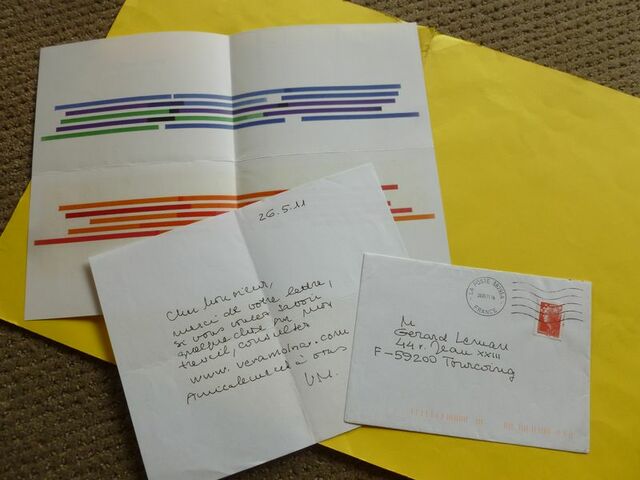 26.5.11
Cher Monsieur,
merci de votre lettre,
si vous voulez savoir
quelque chose sur mon
travail, consultez
www.veramolnar.com
Amicalement à vous
VM.
LA POSTE
FRANCE
M
Gérard Leman
44 r. Jean XXIII
F-59200 Tourcoing